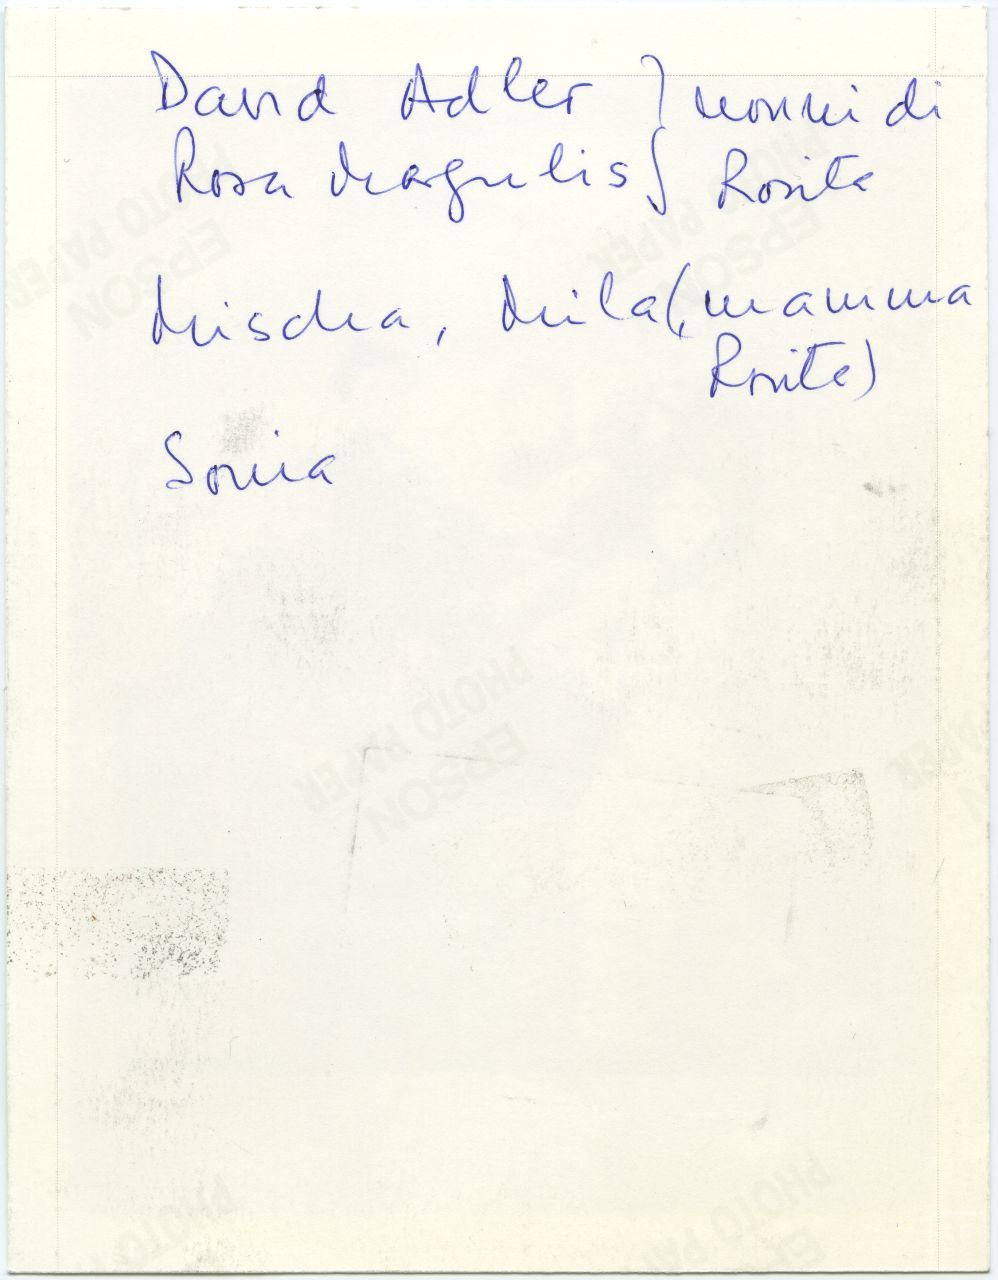 David Adler } nonni di
Rosa Margulis } Rosita
Mischa, Mila (mamma
Rosita)
Sonia
PHOTO PAPER
EPSON
PHOTO PAPER
EPSON
PHOTO PAPER
EPSON
PAPER
PHOTO
PHOTO PA